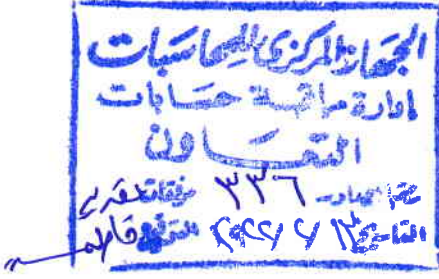 الجهاز المركزى للمحاسبات
إدارة مراقبة حسابات
التعاون
صادر ٣٣٦ مرفقات تقرير
التاريخ التوقيع فاطمة